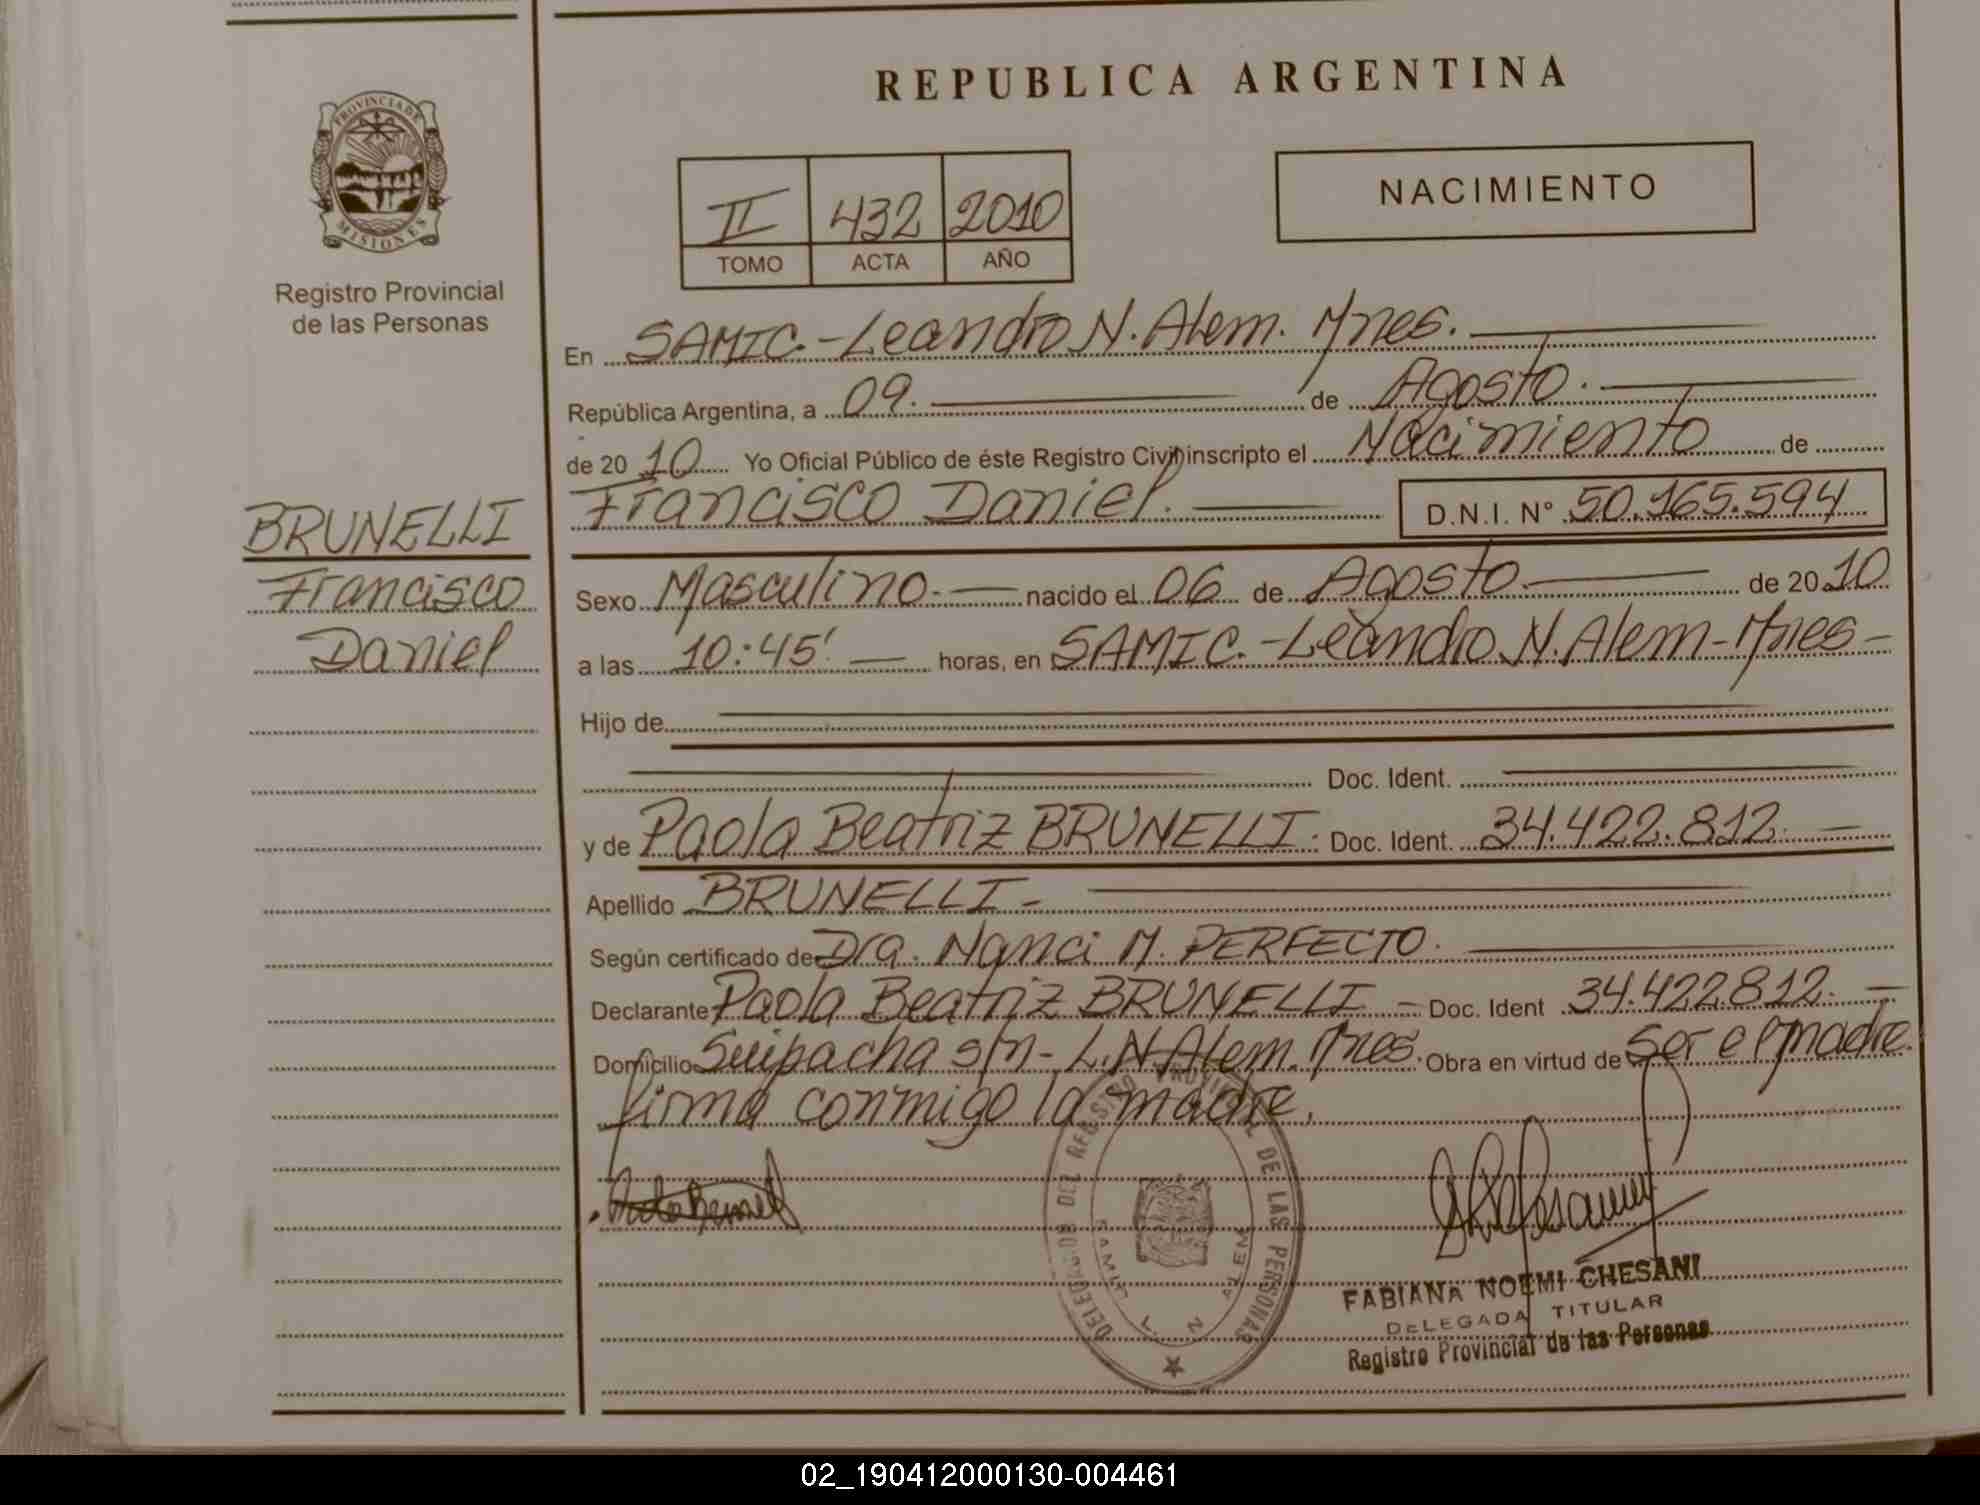 REPUBLICA ARGENTINA
PROVINCIA DE
MISIONES
Registro Provincial
de las Personas
BRUNELLI
Francisco
Daniel
II 432 2010
TOMO ACTA AÑO
NACIMIENTO
En SAMIC.-Leandro N. Alem. Mnes.
República Argentina, a 09. de Agosto.
de 20 10 Yo Oficial Público de éste Registro Civil inscripto el Nacimiento de
Francisco Daniel. D.N.I. N° 50.165.594
Sexo Masculino.- nacido el 06 de Agosto. de 20 10
a las 10:45' horas, en SAMIC.-Leandro N. Alem-Mnes-
Hijo de
Doc. Ident.
y de Paola Beatriz BRUNELLI. Doc. Ident. 34.422.812.
Apellido BRUNELLI-
Según certificado de Dra. Nanci M. PERFECTO.
Declarante Paola Beatriz BRUNELLI - Doc. Ident 34.422.812.-
Domicilio Suipacha s/n- L.N Alem. Mnes. Obra en virtud de Ser el madre.
firma conmigo la madre.
REGISTRO PROVINCIAL DE LAS PERSONAS
L. N. ALEM
FABIANA NOEMI CHESANI
DELEGADA TITULAR
Registro Provincial de las Personas
02_190412000130-004461